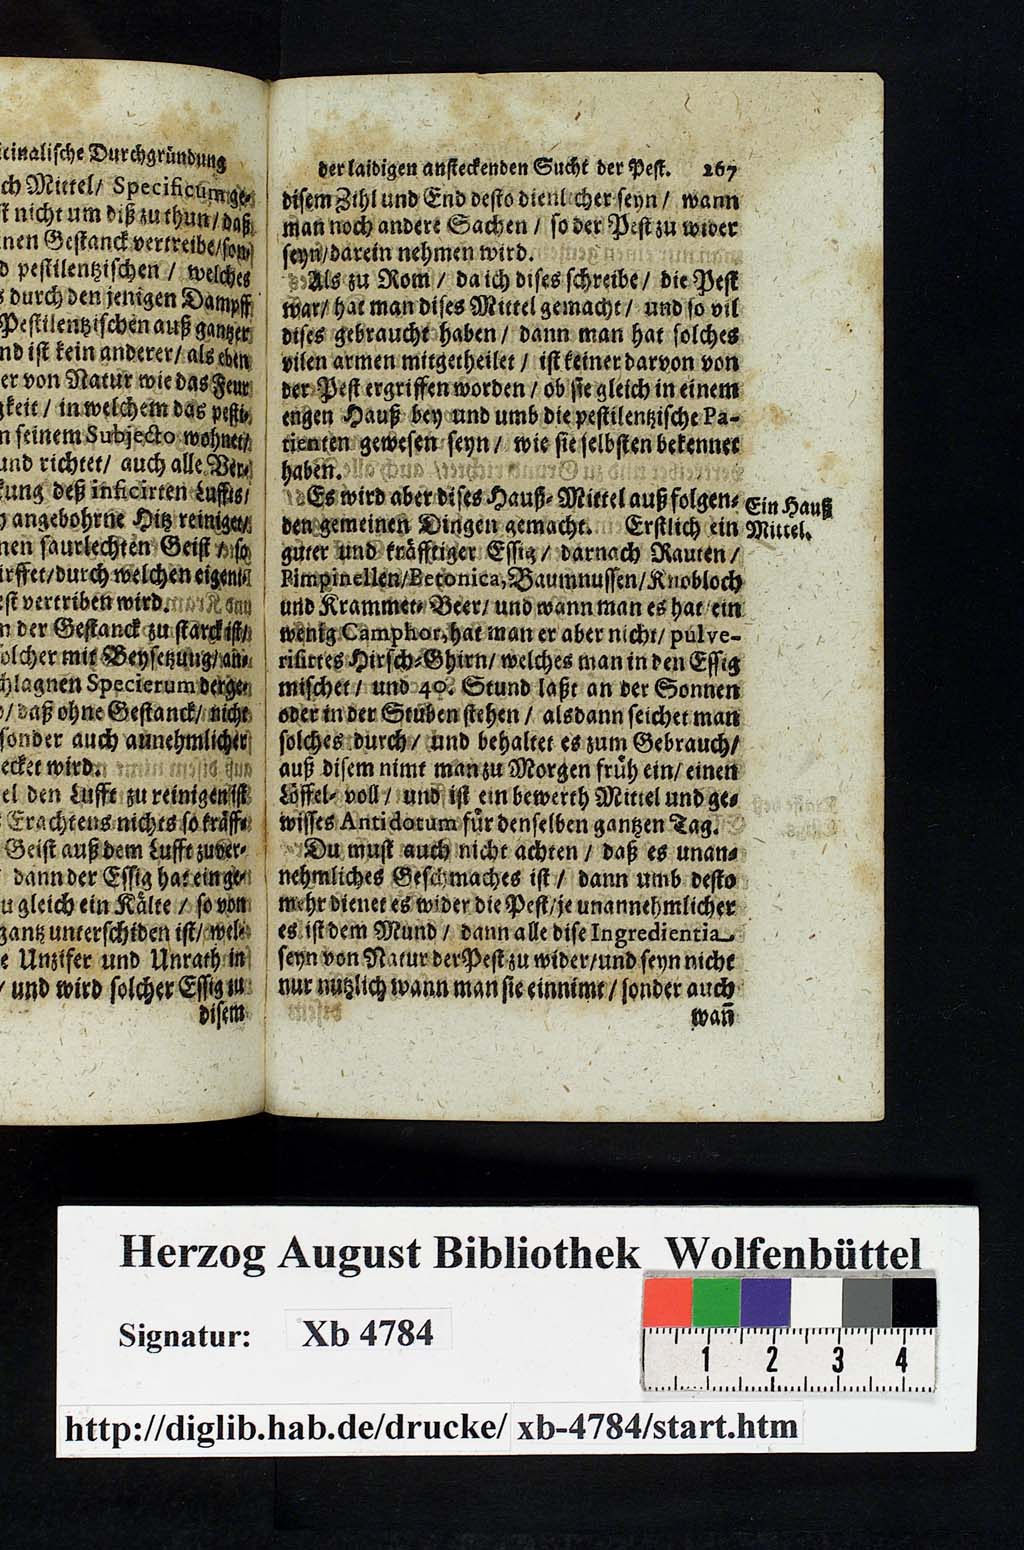 der laidigen ansteckenden Sucht der Pest. 267
disem Zihl und End desto dienlicher seyn / wann
man noch andere Sachen / so der Pest zu wider
seyn / darein nehmen wird.
Als zu Rom / da ich dises schreibe / die Pest
war / hat man dises Mittel gemacht / und so vil
dises gebraucht haben / dann man hat solches
vilen armen mitgetheilet / ist keiner darvon von
der Pest ergriffen worden / ob sie gleich in einem
engen Hauß bey und umb die pestilentzische Pa-
tienten gewesen seyn / wie sie selbsten bekennet
haben.
Es wird aber dises Hauß-Mittel auß folgen-
den gemeinen Dingen gemacht. Erstlich ein
guter und kräfftiger Essig / darnach Rauten /
Pimpinellen / Betonica, Baumnussen / Knobloch
und Krammet-Beer / und wann man es hat ein
wenig Camphor, hat man er aber nicht / pulve-
risirtes Hirsch-Ghirn / welches man in den Essig
mischet / und 40. Stund laßt an der Sonnen
oder in der Stuben stehen / alsdann seichet man
solches durch / und behaltet es zum Gebrauch /
auß disem nimt man zu Morgen früh ein / einen
Löffel-voll / und ist ein bewerth Mittel und ge-
wisses Antidotum für denselben gantzen Tag.
Du must auch nicht achten / daß es unan-
nehmliches Geschmaches ist / dann umb desto
mehr dienet es wider die Pest / je unannehmlicher
es ist dem Mund / dann alle dise Ingredientia
seyn von Natur der Pest zu wider / und seyn nicht
nur nutzlich wann man sie einnimt / sonder auch
wañ
Ein Hauß
Mittel.
icinalische Durchgründung
ch Mittel / Specificum ge-
t nicht um diß zu thun / daß
nen Gestanck vertreibe / son-
d pestilentzischen / welches
s durch den jenigen Dampff
Pestilentzischen auß gantzer
nd ist kein anderer / als eben
er von Natur wie das Feur
gkeit / in welchem das pesti-
n seinem Subjecto wohnet /
und richtet / auch alle Ver-
kung deß inficirten Luffts /
angebohrne Hitz reiniget /
nen saurlechten Geist / so
irffet / durch welchen eigens
est vertriben wird.
n der Gestanck zu starck ist /
olcher mit Beysetzung / an-
chlagnen Specierum derge-
/ daß ohne Gestanck / nicht
sonder auch annehmlicher
ecket wird.
el den Lufft zu reinigen ist
Erachtens nichts so kräff-
Geist auß dem Lufft zu ver-
dann der Essig hat ein ge-
u gleich ein Kälte / so von
gantz unterschiden ist / wel-
e Unzifer und Unrath in
/ und wird solcher Essig zu
disem
Herzog August Bibliothek Wolfenbüttel
Signatur: Xb 4784
1 2 3 4
http://diglib.hab.de/drucke/ xb-4784/start.htm